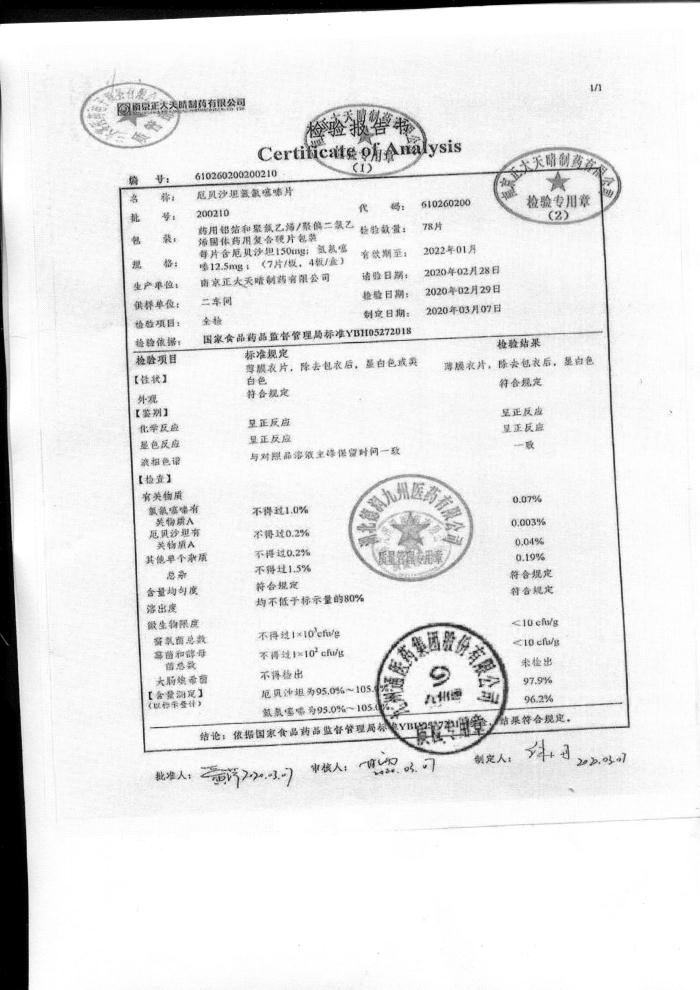 1/1
南京正大天晴制药有限公司
检验报告书
Certificate of Analysis
(1)
南京正大天晴制药有限公司
检验专用章
(2)
编 号: 610260200200210
名 称: 厄贝沙坦氢氯噻嗪片
批 号: 200210
代 码: 610260200
包 装: 药用铝箔和聚氯乙烯/聚偏二氯乙烯固体药用复合硬片包装
检验数量: 78片
规 格: 每片含厄贝沙坦150mg; 氢氯噻嗪12.5mg; (7片/板, 4板/盒)
有效期至: 2022年01月
生产单位: 南京正大天晴制药有限公司
请验日期: 2020年02月28日
供样单位: 二车间
检验日期: 2020年02月29日
检验项目: 全检
制定日期: 2020年03月07日
检验依据: 国家食品药品监督管理局标准YBH05272018
检验项目 标准规定 检验结果
【性状】 薄膜衣片, 除去包衣后, 显白色或类白色 薄膜衣片, 除去包衣后, 显白色
外观 符合规定 符合规定
【鉴别】
化学反应 呈正反应 呈正反应
显色反应 呈正反应 呈正反应
液相色谱 与对照品溶液主峰保留时间一致 一致
【检查】
有关物质
氢氯噻嗪有关物质A 不得过1.0% 0.07%
厄贝沙坦有关物质A 不得过0.2% 0.003%
其他单个杂质 不得过0.2% 0.04%
总杂 不得过1.5% 0.19%
含量均匀度 符合规定 符合规定
溶出度 均不低于标示量的80% 符合规定
微生物限度
需氧菌总数 不得过1×10³cfu/g <10 cfu/g
霉菌和酵母菌总数 不得过1×10² cfu/g <10 cfu/g
大肠埃希菌 不得检出 未检出
【含量测定】 厄贝沙坦为95.0%~105.0% 97.9%
(以标示量计) 氢氯噻嗪为95.0%~105.0% 96.2%
结论: 依据国家食品药品监督管理局标准YBH05272018, 结果符合规定。
湖北德润九州医药有限公司
质量管理专用章
九州通医药集团股份有限公司
九州通
批准人: 2020.03.07
审核人: 2020.03.07
制定人: 2020.03.07